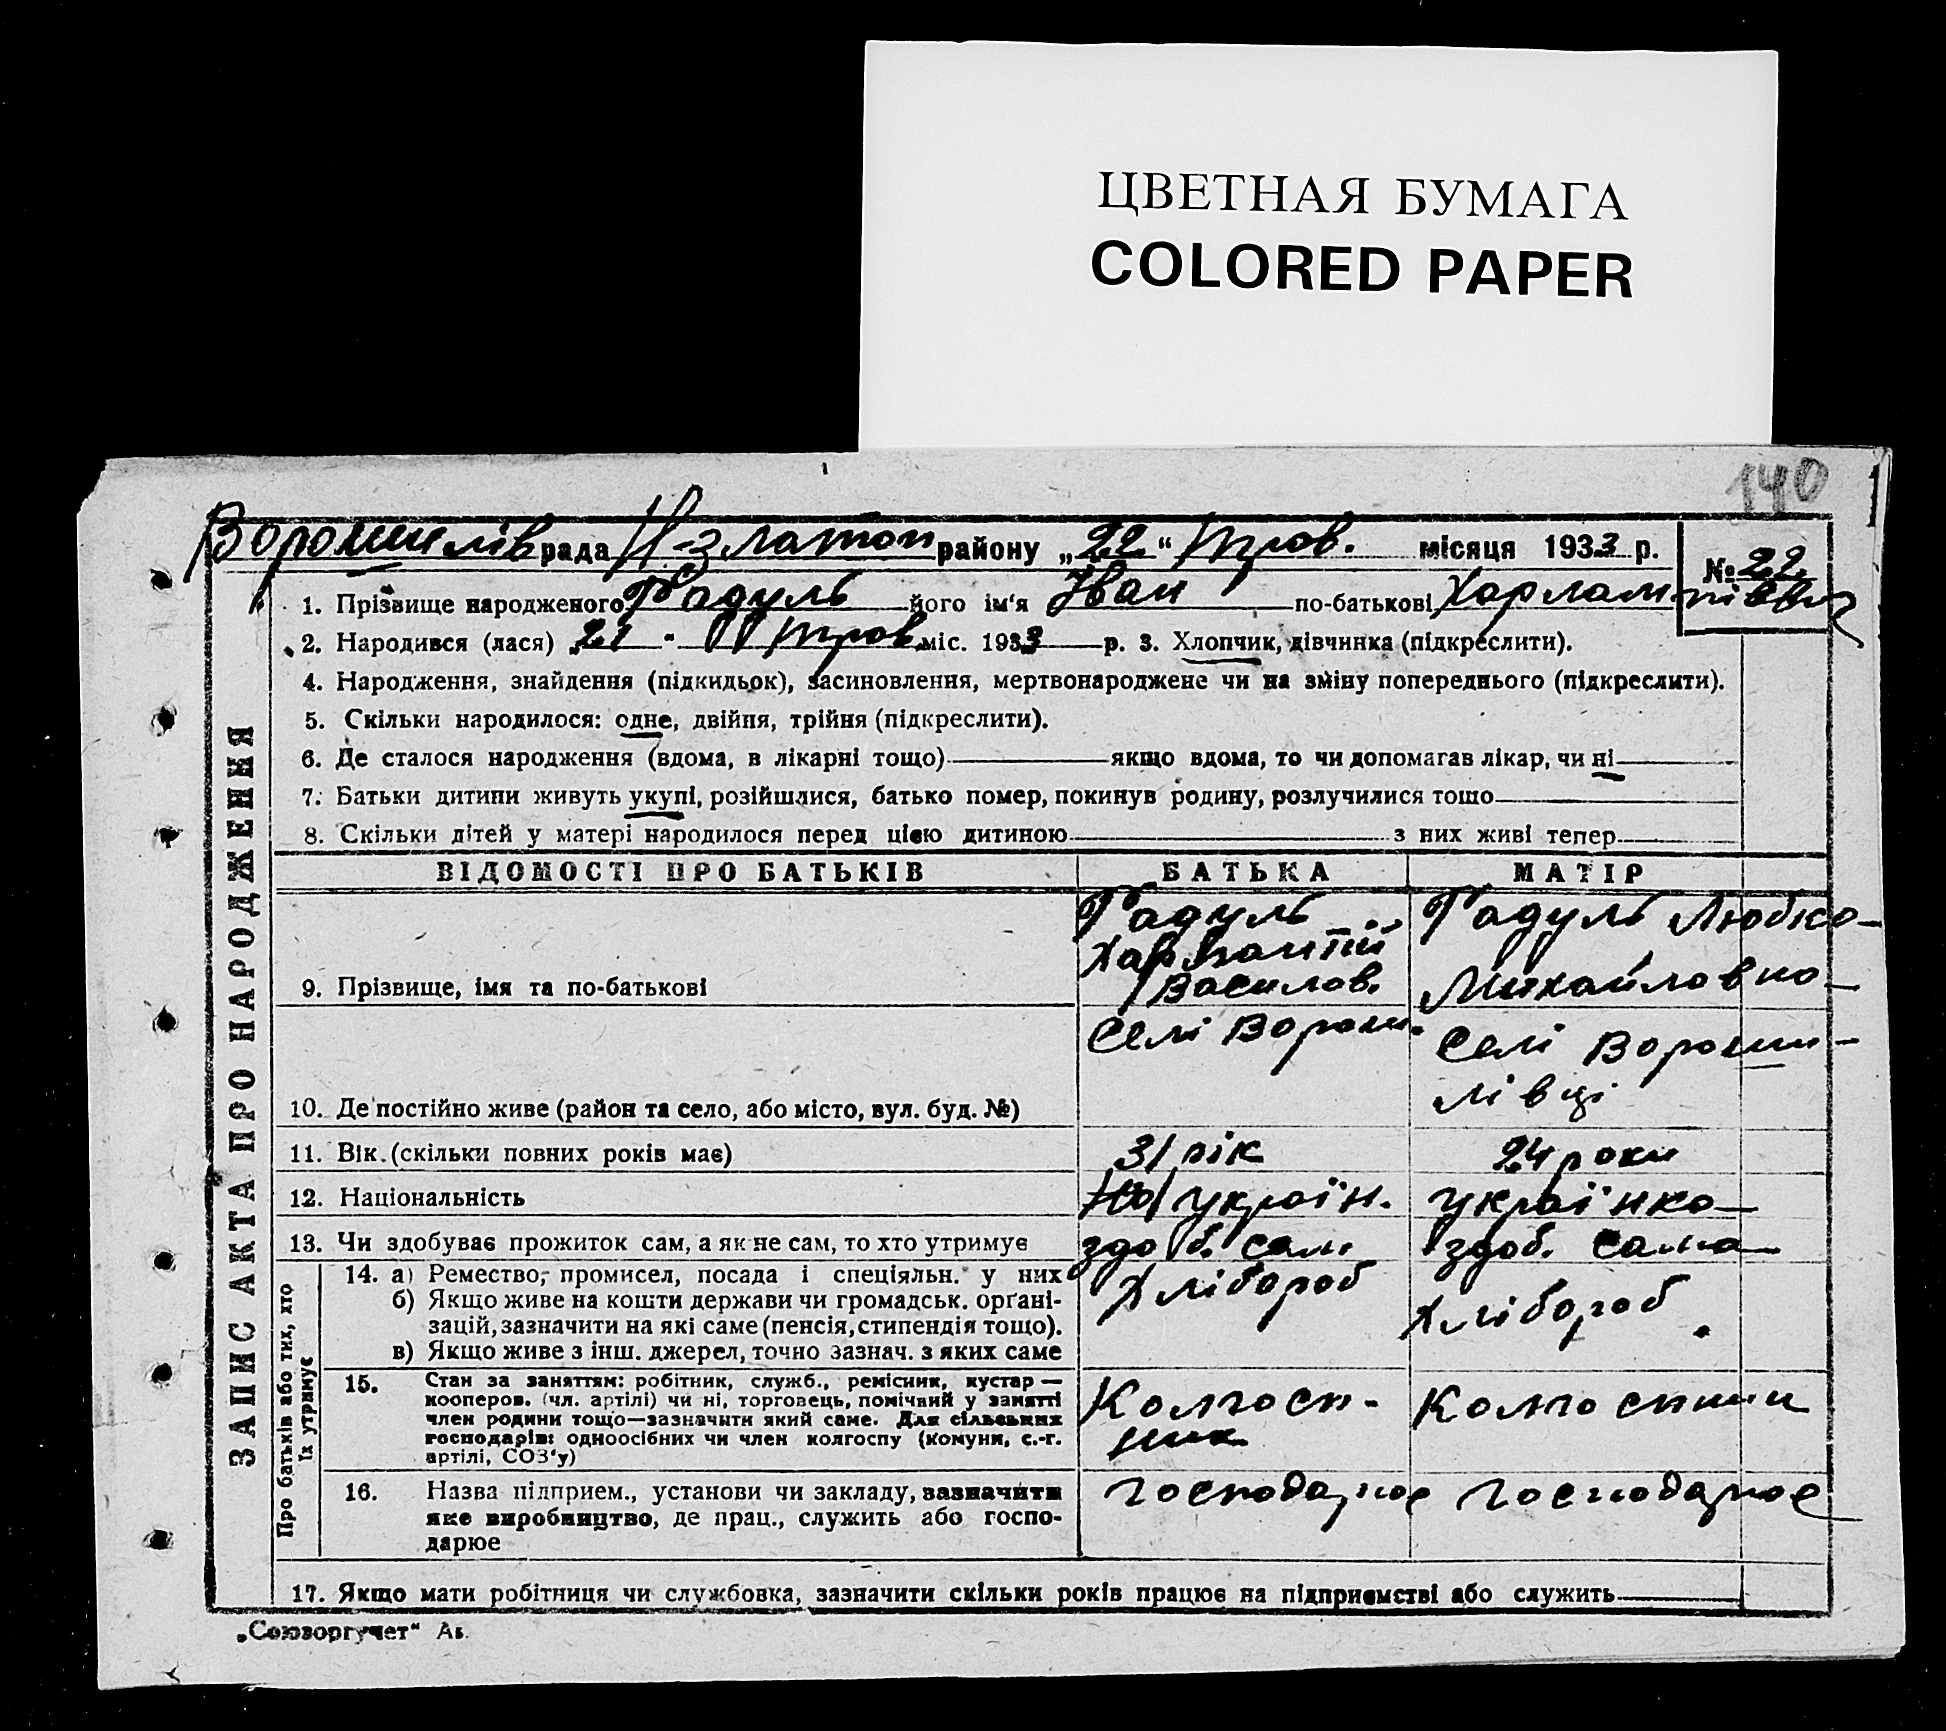 ЦВЕТНАЯ БУМАГА
COLORED PAPER
140
Ворошилів рада Н-златоп району „22“ трав. місяця 1933 р.
№ 22
1. Прізвище народженого Радуль його ім‘я Іван по-батькові Харлампіввич
2. Народився (лася) „21 - " трав міс. 1933 р. 3. Хлопчик, дівчинка (підкреслити).
4. Народження, знайдення (підкидьок), засиновлення, мертвонароджене чи на зміну попереднього (підкреслити).
5. Скільки народилося: одне, двійня, трійня (підкреслити).
6. Де сталося народження (вдома, в лікарні тощо) якщо вдома, то чи допомагав лікар, чи ні
7. Батьки дитини живуть укупі, розійшлися, батько помер, покинув родину, розлучилися тощо
8. Скільки дітей у матері народилося перед цією дитиною з них живі тепер
ЗАПИС АКТА ПРО НАРОДЖЕННЯ
ВІДОМОСТІ ПРО БАТЬКІВ БАТЬКА МАТІР
9. Прізвище, імя та по-батькові
Радуль
Харлампій
Василов.
Радуль Любка
Михайловна
10. Де постійно живе (район та село, або місто, вул. буд. №)
Селі Ворош.
Селі Вороши-
лівці
11. Вік (скільки повних років має) 31 рік 24 роки
12. Національність україн. українка
13. Чи здобуває прожиток сам, а як не сам, то хто утримує здоб. сам здоб. сама
Про батьків або тих, хто
їх утримує
14. а) Ремество, промисел, посада і спеціяльн. у них
б) Якщо живе на кошти держави чи громадськ. орґані-
зацій, зазначити на які саме (пенсія, стипендія тощо).
в) Якщо живе з інш. джерел, точно зазнач. з яких саме
Хлібороб
Хлібороб
15. Стан за заняттям: робітник, служб., ремісник, кустар —
кооперов. (чл. артілі) чи ні, торговець, помічний у занятті
член родини тощо—зазначити який саме. Для сільських
господарів: одноосібних чи член колгоспу (комуни, с.-г.
артілі, СОЗ‘у)
Колгосп-
ник
Колгоспник
16. Назва підприєм., установи чи закладу, зазначити
яке виробництво, де прац., служить або госпо-
дарює
господарює
господарює
17. Якщо мати робітниця чи службовка, зазначити скільки років працює на підприємстві або служить
„Союзоргучет“